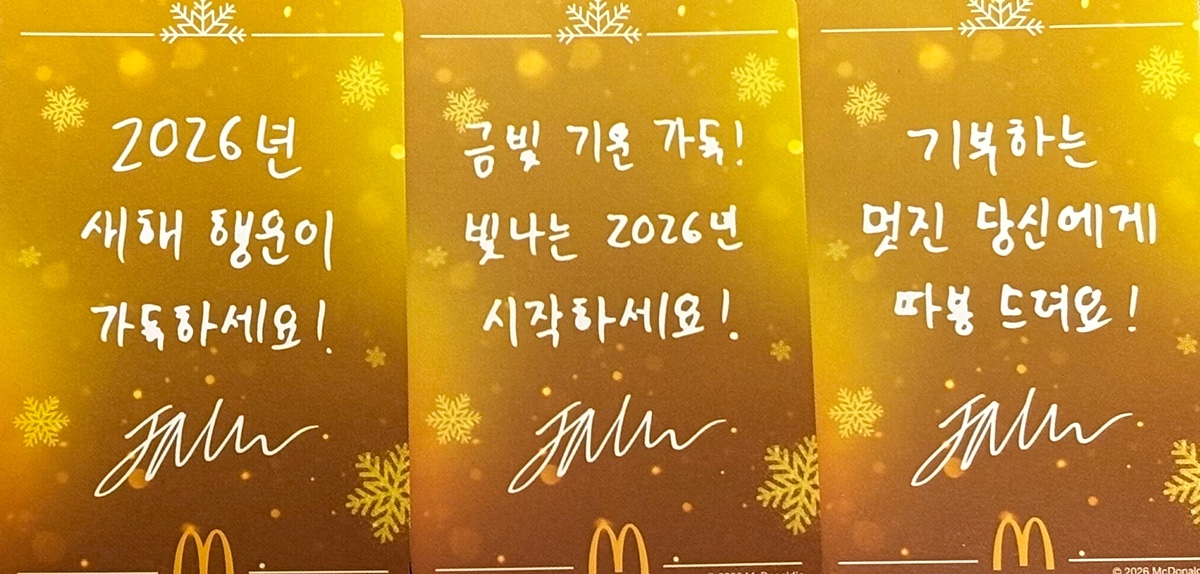 2026년
새해 행운이
가득하세요!
금빛 기운 가득!
빛나는 2026년
시작하세요!
기부하는
멋진 당신에게
따봉 드려요!
© 2026 McDonald